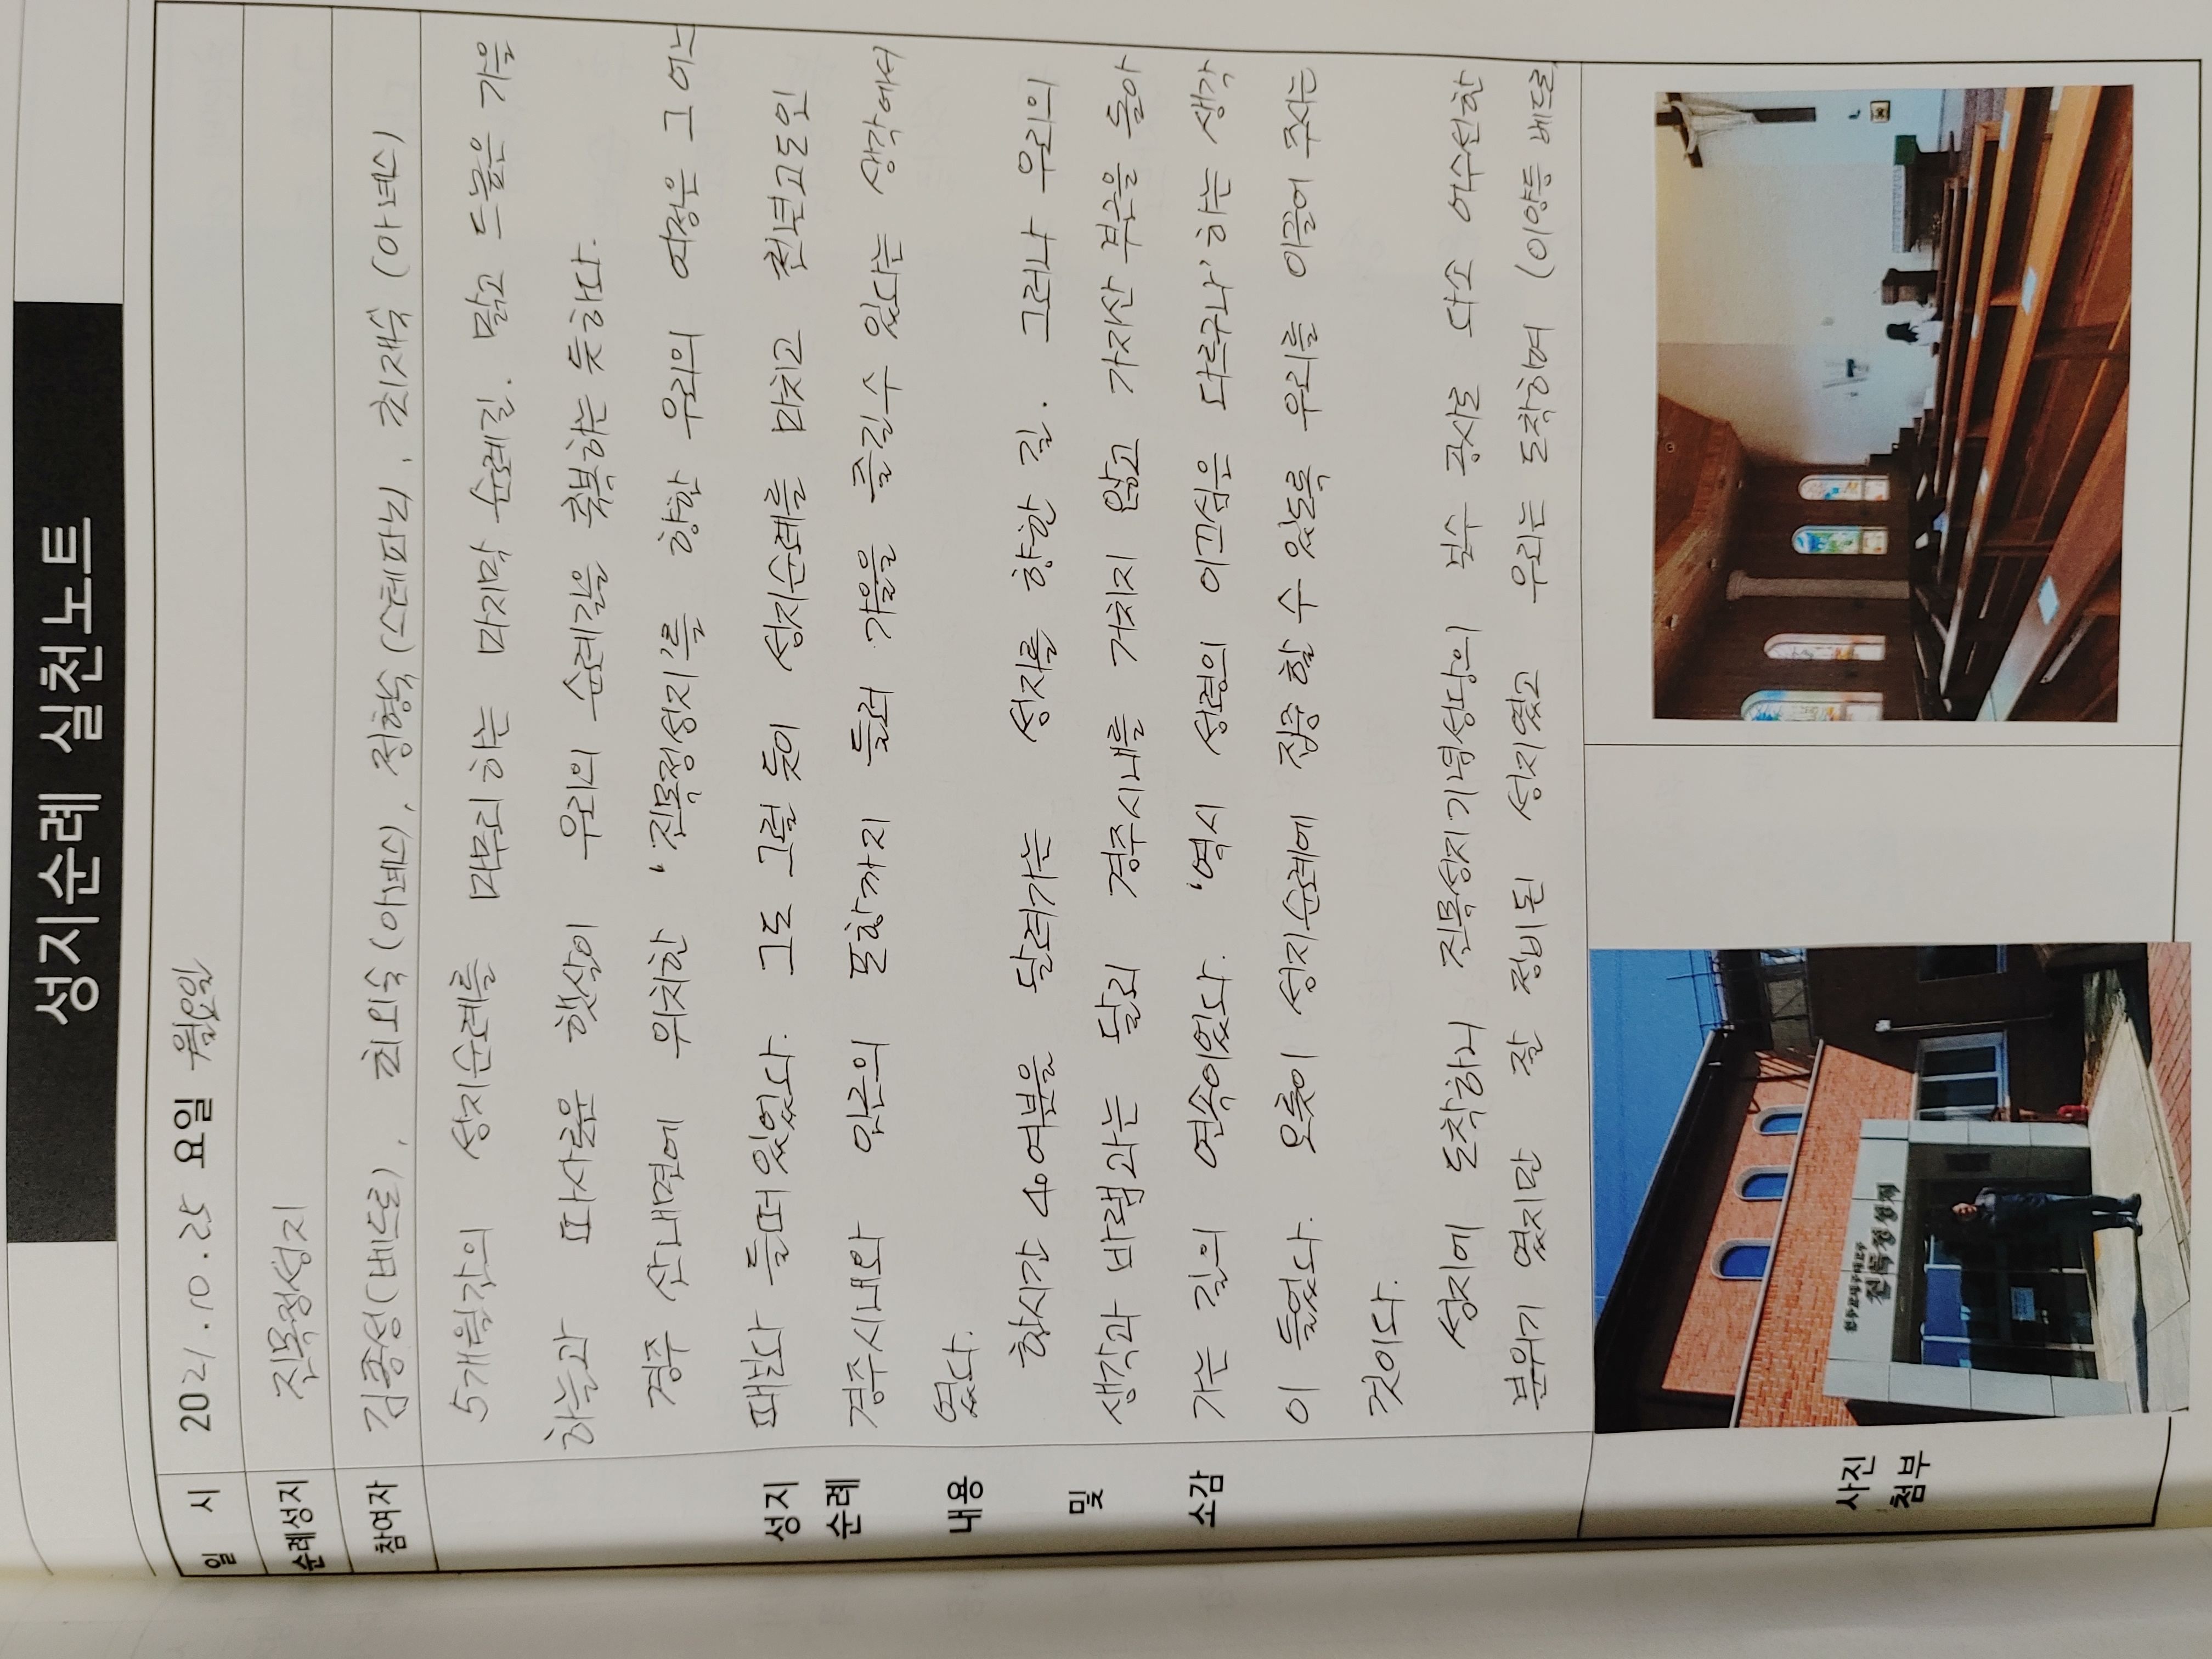 성지순례 실천노트
일 시 2021.10.25 요일 월요일
순례성지 진목정성지
참여자 김종성(베드로), 최외숙(아녜스), 정형숙(스테파니), 최재숙(아녜스)
5개월간의 성지순례를 마무리 하는 마지막 순례길. 맑고 드높은 가을
하늘과 따사로운 햇살이 우리의 순례길을 축복하는 듯하다.
경주 산내면에 위치한 '진목정성지'를 향한 우리의 여정은 그 어느
때보다 들떠 있었다. 그도 그럴 듯이 성지순례를 마치고 천년고도인
경주시내와 인근의 포항까지 들러 가을을 즐길 수 있다는 생각에서
였다.
한시간 40여분을 달려가는 성지를 향한 길. 그러나 우리의
생각과 바램과는 달리 경주시내를 거치지 않고 가지산 부근을 돌아
가는 길의 연속이었다. '역시 성령의 이끄심은 다르구나' 하는 생각
이 들었다. 오롯이 성지순례에 집중 할 수 있도록 우리를 이끌어 주시는
것이다.
성지에 도착하니 진목성지기념성당의 보수 공사로 다소 어수선한
분위기 였지만 잘 정비된 성지였고 우리는 도착하여 (이양등 베드로,
성지
순례
내용
및
소감
사진
첨부
천주교대구대교구
진목정성지